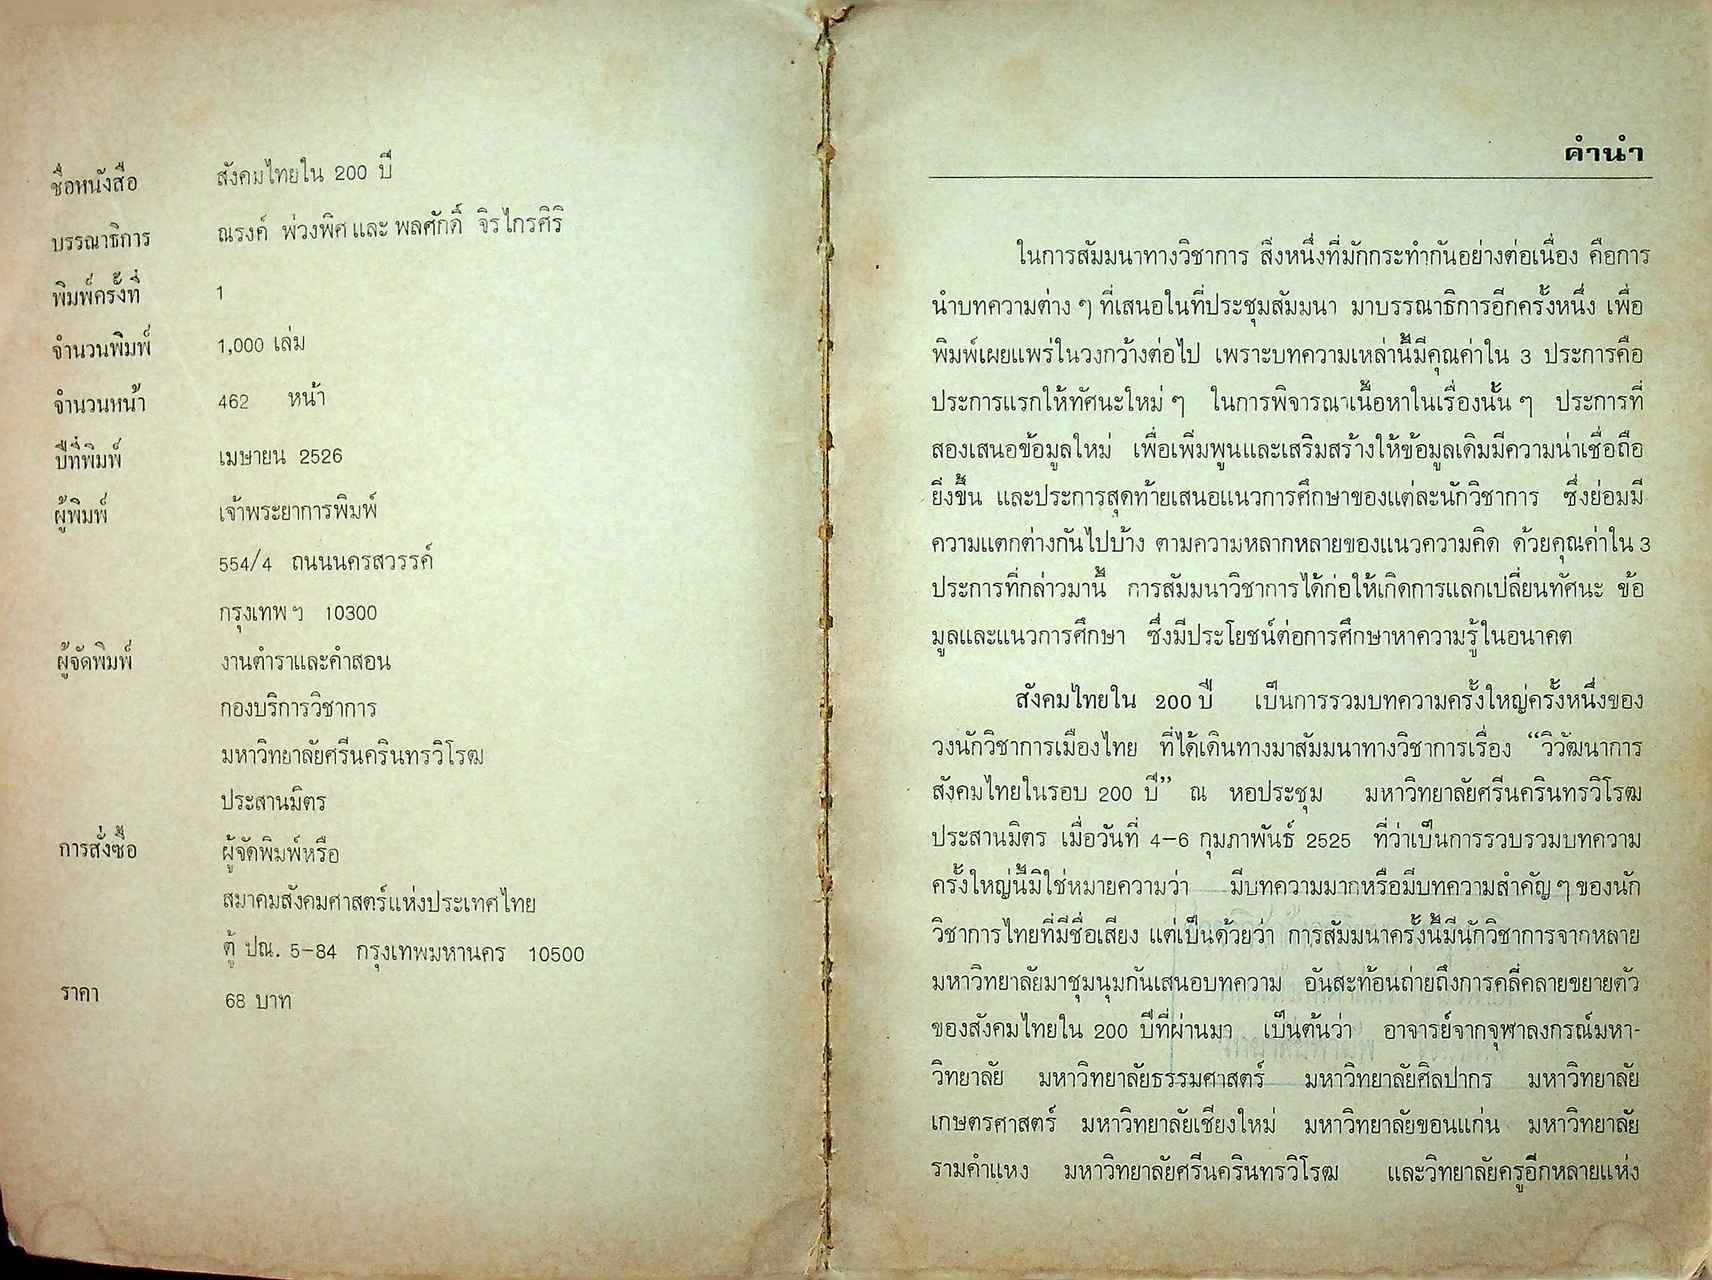 ชื่อหนังสือ สังคมไทยใน 200 ปี
บรรณาธิการ ณรงค์ พ่วงพิศ และ พลศักดิ์ จิรไกรศิริ
พิมพ์ครั้งที่ 1
จำนวนพิมพ์ 1,000 เล่ม
จำนวนหน้า 462 หน้า
ปีที่พิมพ์ เมษายน 2526
ผู้พิมพ์ เจ้าพระยาการพิมพ์
554/4 ถนนนครสวรรค์
กรุงเทพฯ 10300
ผู้จัดพิมพ์ งานตำราและคำสอน
กองบริการวิชาการ
มหาวิทยาลัยศรีนครินทรวิโรฒ
ประสานมิตร
การสั่งซื้อ ผู้จัดพิมพ์หรือ
สมาคมสังคมศาสตร์แห่งประเทศไทย
ตู้ ปณ. 5-84 กรุงเทพมหานคร 10500
ราคา 68 บาท
คำนำ
ในการสัมมนาทางวิชาการ สิ่งหนึ่งที่มักกระทำกันอย่างต่อเนื่อง คือการ
นำบทความต่าง ๆ ที่เสนอในที่ประชุมสัมมนา มาบรรณาธิการอีกครั้งหนึ่ง เพื่อ
พิมพ์เผยแพร่ในวงกว้างต่อไป เพราะบทความเหล่านี้มีคุณค่าใน 3 ประการคือ
ประการแรกให้ทัศนะใหม่ ๆ ในการพิจารณาเนื้อหาในเรื่องนั้น ๆ ประการที่
สองเสนอข้อมูลใหม่ เพื่อเพิ่มพูนและเสริมสร้างให้ข้อมูลเดิมมีความน่าเชื่อถือ
ยิ่งขึ้น และประการสุดท้ายเสนอแนวการศึกษาของแต่ละนักวิชาการ ซึ่งย่อมมี
ความแตกต่างกันไปบ้าง ตามความหลากหลายของแนวความคิด ด้วยคุณค่าใน 3
ประการที่กล่าวมานี้ การสัมมนาวิชาการได้ก่อให้เกิดการแลกเปลี่ยนทัศนะ ข้อ
มูลและแนวการศึกษา ซึ่งมีประโยชน์ต่อการศึกษาหาความรู้ในอนาคต
สังคมไทยใน 200 ปี เป็นการรวมบทความครั้งใหญ่ครั้งหนึ่งของ
วงนักวิชาการเมืองไทย ที่ได้เดินทางมาสัมมนาทางวิชาการเรื่อง “วิวัฒนาการ
สังคมไทยในรอบ 200 ปี” ณ หอประชุม มหาวิทยาลัยศรีนครินทรวิโรฒ
ประสานมิตร เมื่อวันที่ 4-6 กุมภาพันธ์ 2525 ที่ว่าเป็นการรวบรวมบทความ
ครั้งใหญ่นี้มิใช่หมายความว่า มีบทความมากหรือมีบทความสำคัญ ๆ ของนัก
วิชาการไทยที่มีชื่อเสียง แต่เป็นด้วยว่า การสัมมนาครั้งนี้มีนักวิชาการจากหลาย
มหาวิทยาลัยมาชุมนุมกันเสนอบทความ อันสะท้อนถ่ายถึงการคลี่คลายขยายตัว
ของสังคมไทยใน 200 ปีที่ผ่านมา เป็นต้นว่า อาจารย์จากจุฬาลงกรณ์มหา-
วิทยาลัย มหาวิทยาลัยธรรมศาสตร์ มหาวิทยาลัยศิลปากร มหาวิทยาลัย
เกษตรศาสตร์ มหาวิทยาลัยเชียงใหม่ มหาวิทยาลัยขอนแก่น มหาวิทยาลัย
รามคำแหง มหาวิทยาลัยศรีนครินทรวิโรฒ และวิทยาลัยครูอีกหลายแห่ง